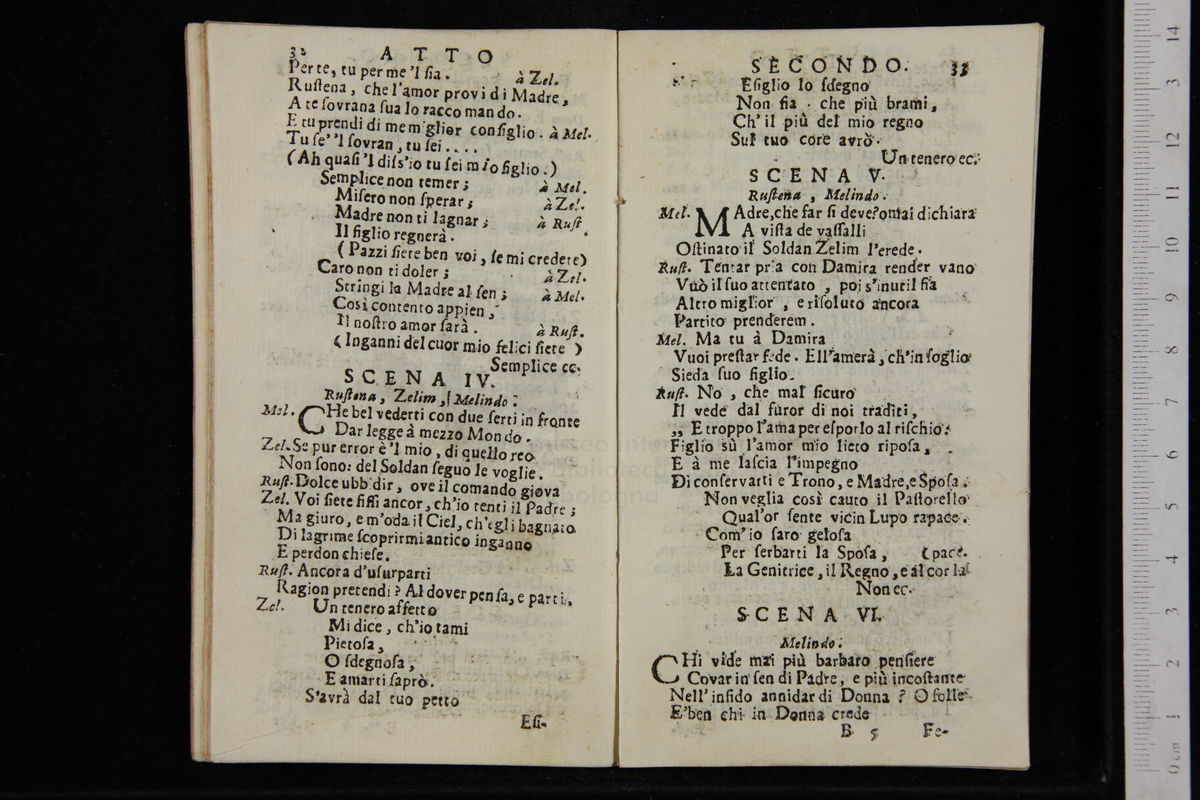 32 ATTO
Per te, tu per me 'l ſia. à Zel.
Ruſtena, che l'amor provi di Madre,
A te ſovrana ſua lo raccomando.
E tu prendi di me miglior conſiglio. à Mel.
Tu ſe' 'l ſovran, tu ſei....
(Ah quaſi 'l diſs'io tu ſei mio figlio.)
Semplice non temer; à Mel.
Miſero non ſperar; à Zel.
Madre non ti lagnar; à Ruſt
Il figlio regnerà.
(Pazzi ſiete ben voi, ſe mi credete)
Caro non ti doler; à Zel.
Stringi la Madre al ſen; à Mel.
Così contento appien,
Il noſtro amor ſarà. à Ruſt.
(Inganni del cuor mio felici ſiete)
Semplice ec.
SCENA IV.
Ruſtena, Zelim, Melindo.
Mel. CHe bel vederti con due ſerti in fronte
Dar legge à mezzo Mondo.
Zel. Se pur error è 'l mio, di quello reo
Non ſono: del Soldan ſeguo le voglie.
Ruſt. Dolce ubbdir, ove il comando giova
Zel. Voi ſiete fiſſi ancor, ch'io tenti il Padre;
Ma giuro, e m'oda il Ciel, ch'egli bagnato
Di lagrime ſcoprirmi antico inganno
E perdon chieſe.
Ruſt. Ancora d'uſurparti
Ragion pretendi? Al dover penſa, e parti.
Zel. Un tenero affetto
Mi dice, ch'io t'ami
Pietoſa,
O ſdegnoſa,
E amarti ſaprò.
S'avrà dal tuo petto
Eſi-
SECONDO. 33
Eſiglio lo ſdegno
Non ſia che più brami,
Ch'il più del mio regno
Sul tuo core avrò.
Un tenero ec.
SCENA V.
Ruſtena, Melindo.
Mel. MAdre, che far ſi deve? omai dichiara
A viſta de vaſſalli
Oſtinato il Soldan Zelim l'erede.
Ruſt. Tentar pria con Damira render vano
Vuò il ſuo attentato, poi s'inutil fia
Altro miglior, e riſoluto ancora
Partito prenderem.
Mel. Ma tu à Damira
Vuoi preſtar fede. Ell'amerà, ch'in ſoglio
Sieda ſuo figlio.
Ruſt. No, che mal ſicuro
Il vede dal furor di noi traditi,
„ E troppo l'ama per eſporlo al riſchio.
Figlio sù l'amor mio lieto ripoſa,
E à me laſcia l'impegno
Di conſervarti e Trono, e Madre, e Spoſa.
Non veglia così cauto il Paſtorello
Qual'or ſente vicin Lupo rapace.
Com'io ſaro geloſa
Per ſerbarti la Spoſa, (pace.
La Genitrice, il Regno, e al cor la
Non ec.
SCENA VI.
Melindo.
CHi vide mai più barbaro penſiere
Covar in ſen di Padre, e più incoſtante
Nell'infido annidar di Donna? O folle
E' ben chi in Donna crede
B 5 Fe-
museo inter
biblioteca
bologna